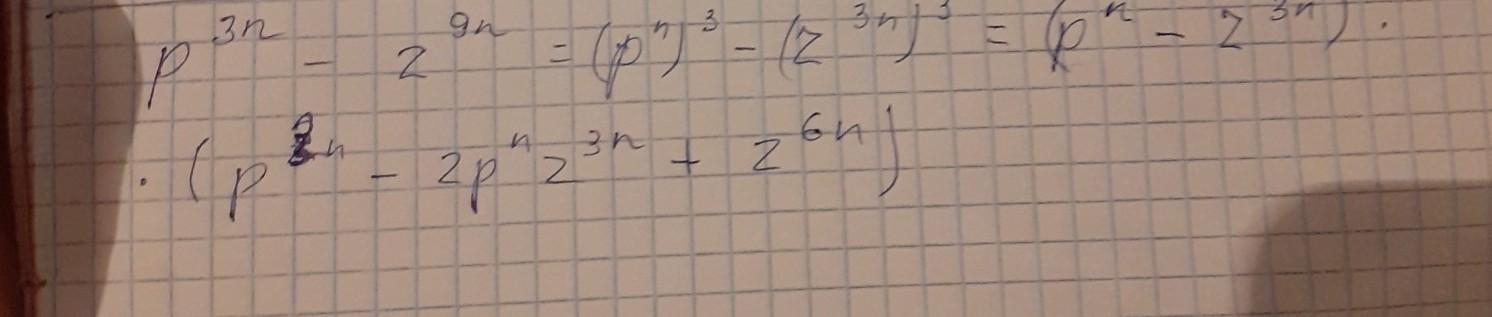 p^{3n} - z^{9n} = (p^n)^3 - (z^{3n})^3 = (p^n - z^{3n}) ·
· (p^{2n} - 2p^n z^{3n} + z^{6n})